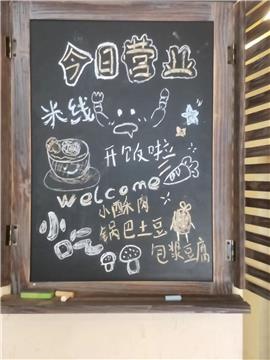 今日营业
米线
开饭啦
welcome
小吃
小酥肉
锅巴土豆
包浆豆腐